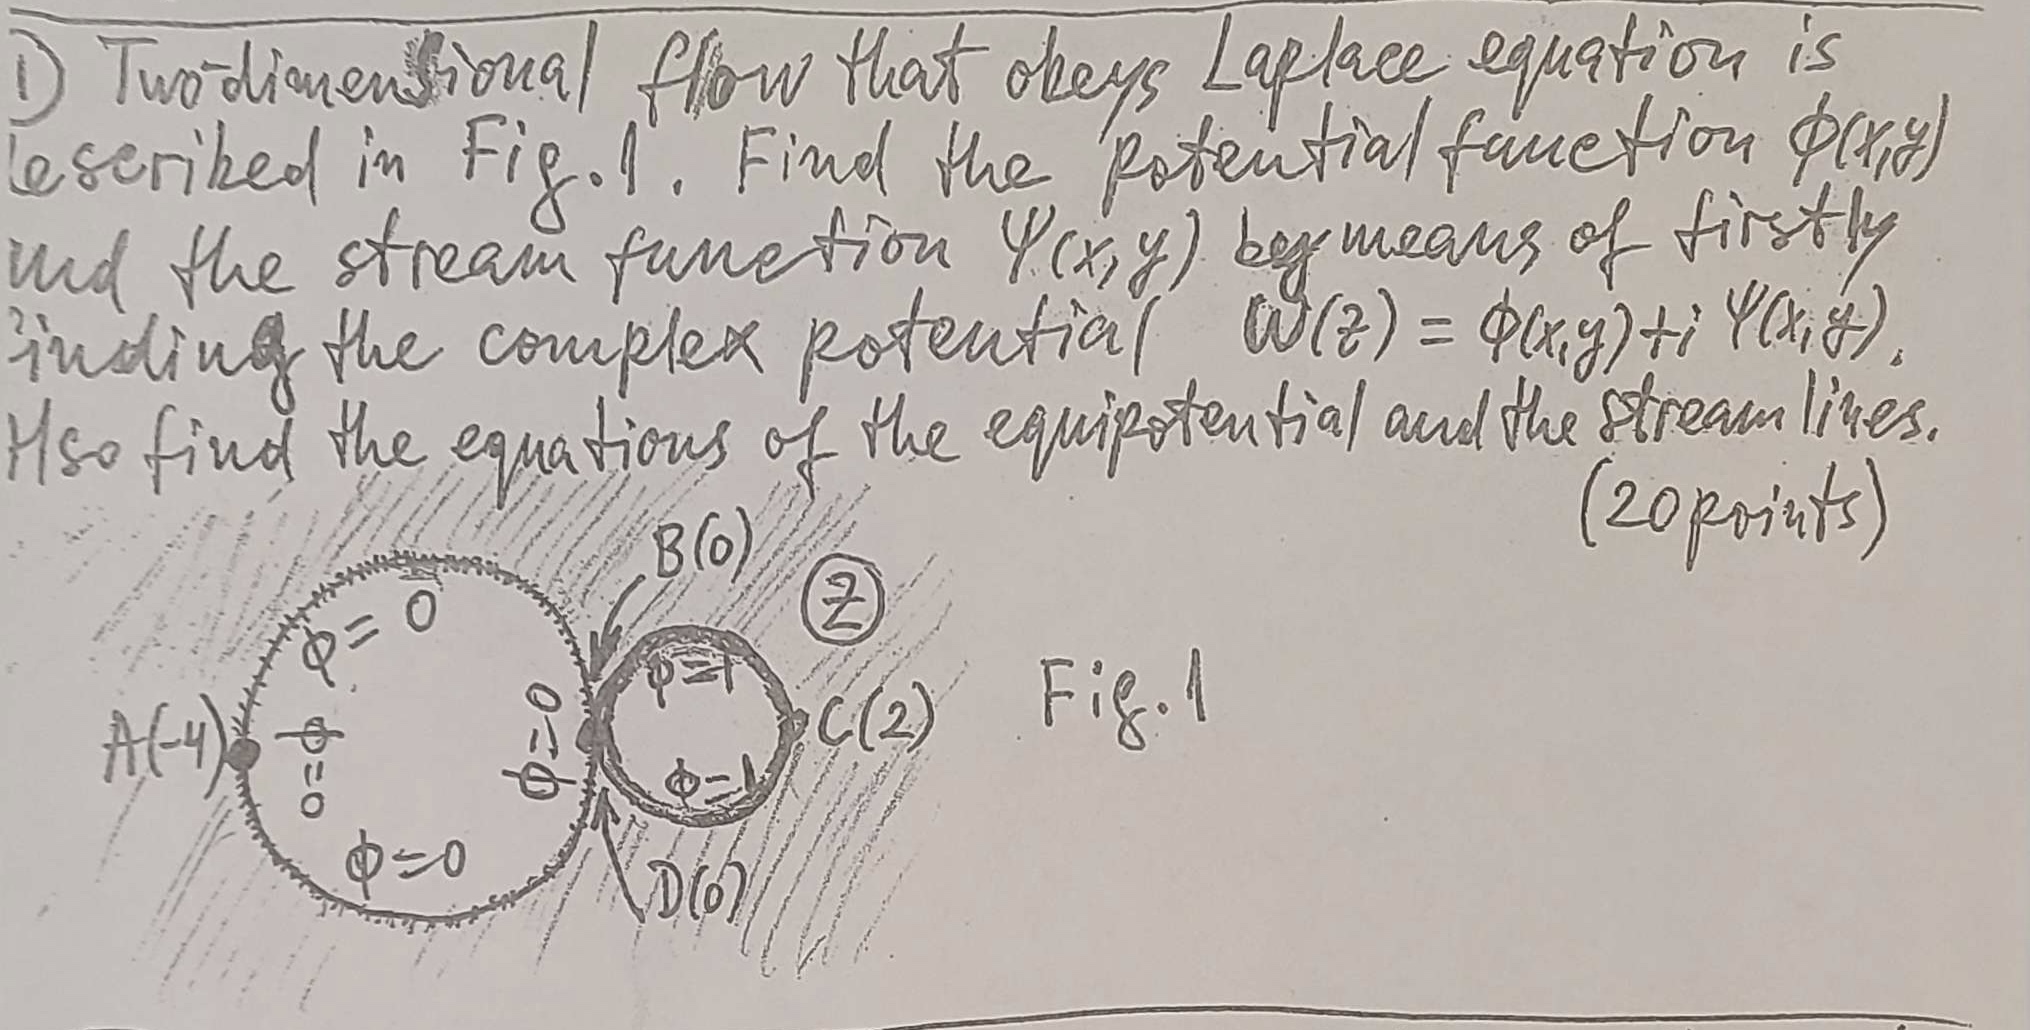 1) Two-dimensional flow that obeys Laplace equation is
escribed in Fig.1. Find the potential function ϕ(x,y)
nd the stream function Ψ(x,y) by means of firstly
inding the complex potential W(z) = ϕ(x,y)+i Ψ(x,y).
Also find the equations of the equipotential and the stream lines.
(20 points)
B(0)
Z
ϕ=0
ϕ=1
A(-4)
ϕ=0
ϕ=0
C(2)
Fig.1
ϕ=1
ϕ=0
D(0)